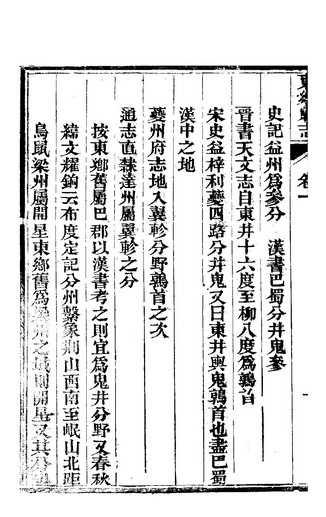 東鄉縣志
卷一
史記益州爲參分　漢書巴蜀分井鬼參
晉書天文志自東井十六度至柳八度爲鶉首
宋史益梓利夔四路分井鬼又曰東井輿鬼鶉首也盡巴蜀
漢中之地
夔州府志地入翼軫分野鶉首之次
通志直隸達州屬翼軫之分
按東鄉舊屬巴郡以漢書考之則宜爲鬼井分野又春秋
緯文耀鉤云布度定記分州繫象荆山西南至岷山北距
鳥鼠梁州屬開星東鄉舊爲梁州之域則開星又其分也